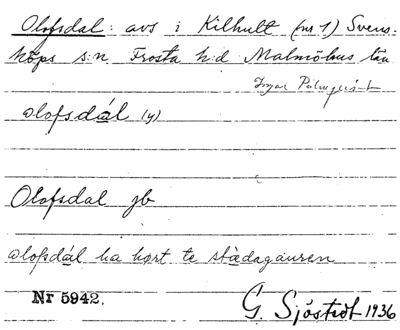 Olofsdal: avs i Kilhult (nr 1) Svens-
köps s:n Frosta h:d Malmöhus län
Ingar Palmquist
olofsdál (y)
Olofsdal jb
olofsdál ha hört te stàdagáuren
Nr 5942.
G. Sjöstedt 1936